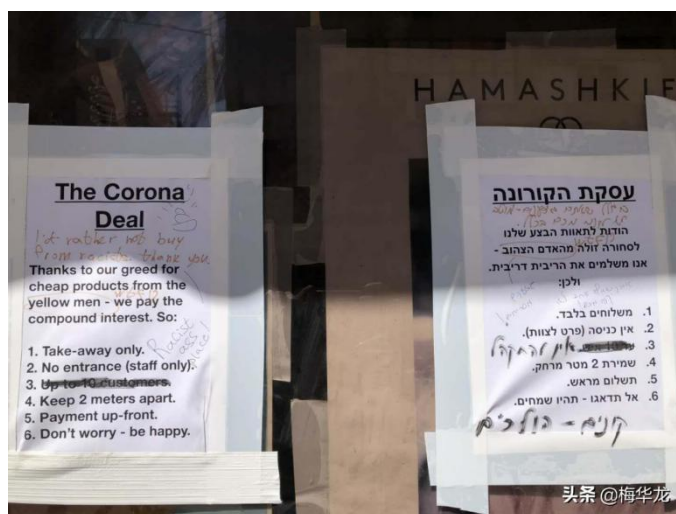 HAMASHKIE
The Corona
Deal
I'd rather not buy
from racists thank you
Thanks to our greed for
cheap products from the
yellow men - we pay the
compound interest. So:
Racist
ass
place!
1. Take-away only.
2. No entrance (staff only).
3. Up to 10 customers.
4. Keep 2 meters apart.
5. Payment up-front.
6. Don't worry - be happy.
עסקת הקורונה
הודות לתאוות הבצע שלנו
לסחורה זולה מהאדם הצהוב -
אנו משלמים את הריבית דריבית.
ולכן:
1. משלוחים בלבד.
2. אין כניסה (פרט לצוות).
3. אין להתקהל
4. שמירת 2 מטר מרחק.
5. תשלום מראש.
6. אל תדאגו - תהיו שמחים.
קונים - הולכים
头条 @梅华龙